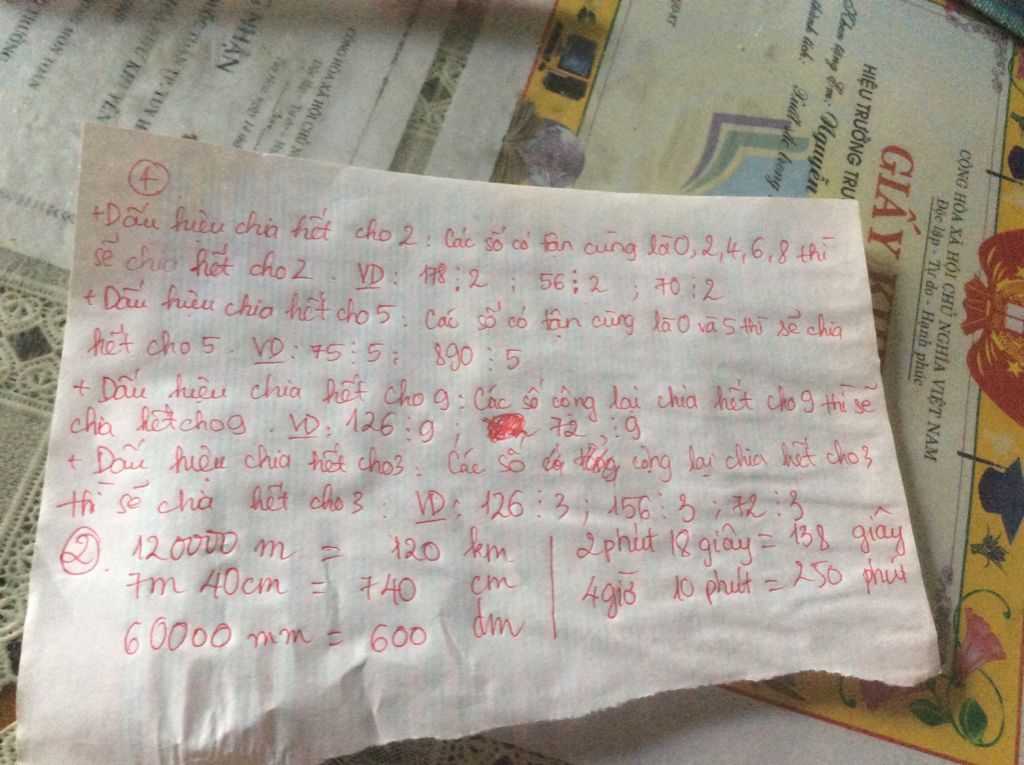 ①
+ Dấu hiệu chia hết cho 2 : Các số có tận cùng là 0, 2, 4, 6, 8 thì
sẽ chia hết cho 2 . VD : 178 ⋮ 2 ; 56 ⋮ 2 ; 70 ⋮ 2
+ Dấu hiệu chia hết cho 5 : Các số có tận cùng là 0 và 5 thì sẽ chia
hết cho 5 . VD : 75 ⋮ 5 ; 890 ⋮ 5
+ Dấu hiệu chia hết cho 9 : Các số cộng lại chia hết cho 9 thì sẽ
chia hết cho 9 . VD : 126 ⋮ 9 ; 72 ⋮ 9
+ Dấu hiệu chia hết cho 3 : Các số cộng lại chia hết cho 3
thì sẽ chia hết cho 3 : VD : 126 ⋮ 3 ; 156 ⋮ 3 ; 72 ⋮ 3
②. 120000 m = 120 km
7m 40cm = 740 cm
60000 mm = 600 dm
2 phút 18 giây = 138 giây
4 giờ 10 phút = 250 phút
CỘNG HÒA XÃ HỘI CHỦ NGHĨA VIỆT NAM
Độc lập - Tự do - Hạnh phúc
GIẤY
HIỆU TRƯỞNG
Nguyễn
NHẬN
CỘNG HÒA XÃ HỘI CHỦ